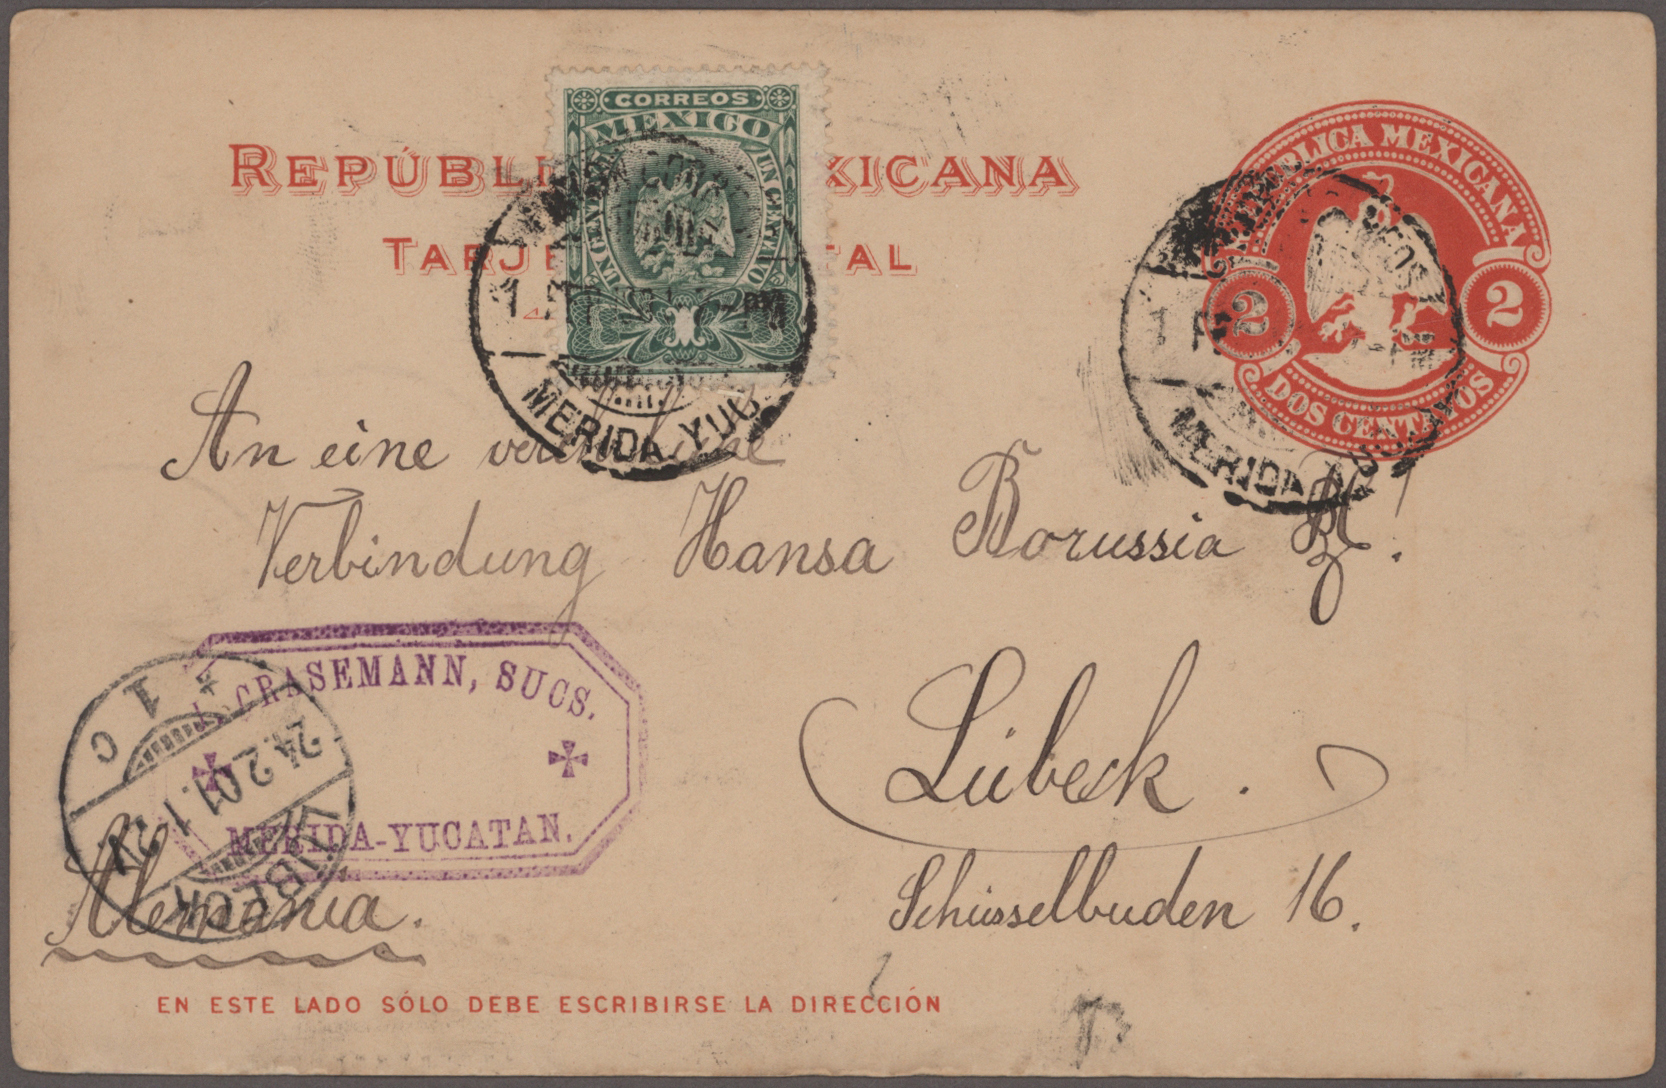 CORREOS
MEXICO
UN CENTAVO
UN CENTAVO
REPÚBLI XICANA
TARJE TAL
REPUBLICA MEXICANA
2 2
DOS CENTAVOS
MERIDA YUC.
MERIDA
An eine verehrliche
Verbindung Hansa Borussia
Lübeck.
Schüsselbuden 16.
J. CRASEMANN, SUCS.
MERIDA-YUCATAN.
LÜBECK
24.2.01.1-2N
* 1 C
Alemania.
EN ESTE LADO SÓLO DEBE ESCRIBIRSE LA DIRECCIÓN